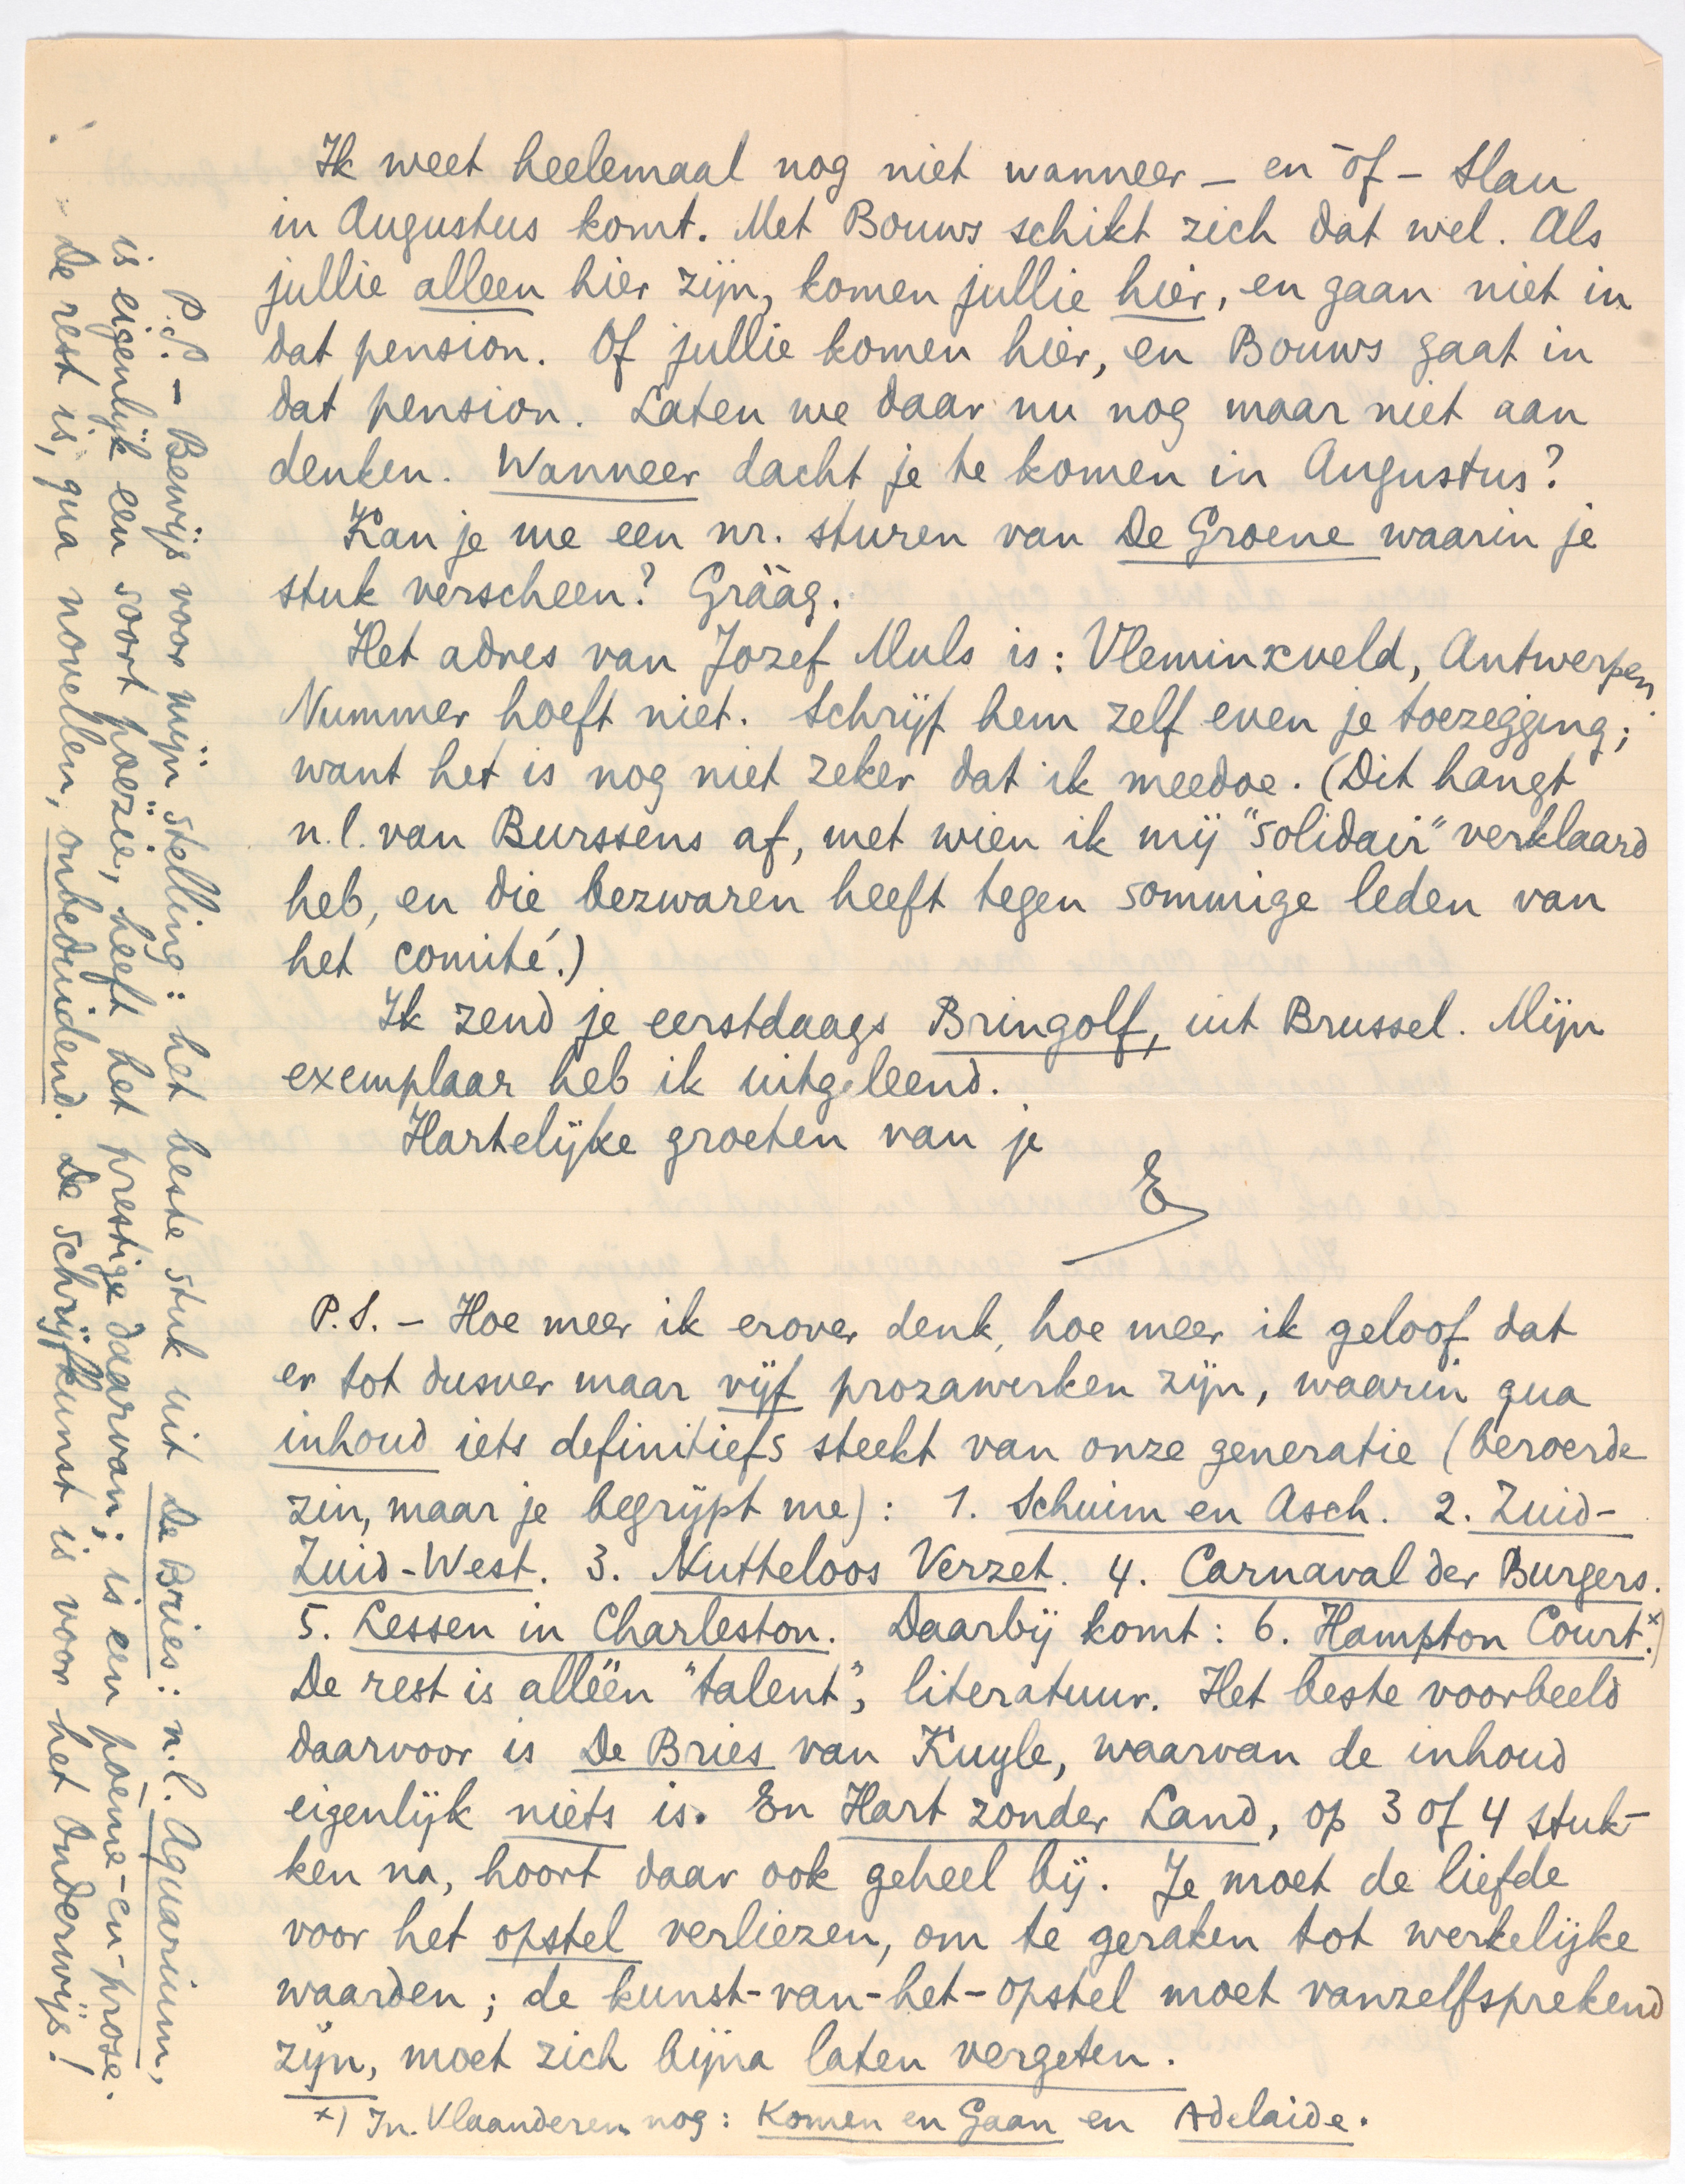 Ik weet heelemaal nog niet wanneer – en òf – Slau
in Augustus komt. Met Bouws schikt zich dat wel. Als
jullie alleen hier zijn, komen jullie hier, en gaan niet in
dat pension. Of jullie komen hier, en Bouws gaat in
dat pension. Laten we daar nu nog maar niet aan
denken. Wanneer dacht je te komen in Augustus?
Kan je me een nr. sturen van De Groene waarin je
stuk verscheen? Gràag.
Het adres van Jozef Muls is: Vleminxveld, Antwerpen.
Nummer hoeft niet. Schrijf hem zelf even je toezegging;
want het is nog niet zeker dat ik meedoe. (Dit hangt
n.l. van Burssens af, met wien ik mij "solidair" verklaard
heb, en die bezwaren heeft tegen sommige leden van
het comité.)
Ik zend je eerstdaags Bringolf, uit Brussel. Mijn
exemplaar heb ik uitgeleend.
Hartelijke groeten van je
E
P.S. – Hoe meer ik erover denk, hoe meer ik geloof dat
er tot dusver maar vijf prozawerken zijn, waarin qua
inhoud iets definitiefs steekt van onze generatie (beroerde
zin, maar je begrijpt me): 1. Schuim en Asch. 2. Zuid-
Zuid-West. 3. Nutteloos Verzet. 4. Carnaval der Burgers.
5. Lessen in Charleston. Daarbij komt: 6. Hampton Court.x)
De rest is alléén "talent", literatuur. Het beste voorbeeld
daarvoor is De Bries van Kuyle, waarvan de inhoud
eigenlijk niets is. En Hart zonder Land, op 3 of 4 stuk-
ken na, hoort daar ook geheel bij. Je moet de liefde
voor het opstel verliezen, om te geraken tot werkelijke
waarden; de kunst-van-het-opstel moet vanzelfsprekend
zijn, moet zich bijna laten vergeten.
x) In Vlaanderen nog: Komen en Gaan en Adelaide.
P.S. – Bewijs voor mijn stelling: het beste stuk uit De Bries: n.l. Aquarium,
is eigenlijk een soort poëzie, heeft het prestige daarvan; is een poème-en-prose.
De rest is, qua novellen, onbeduidend. De schrijfkunst is voor het onderwijs!